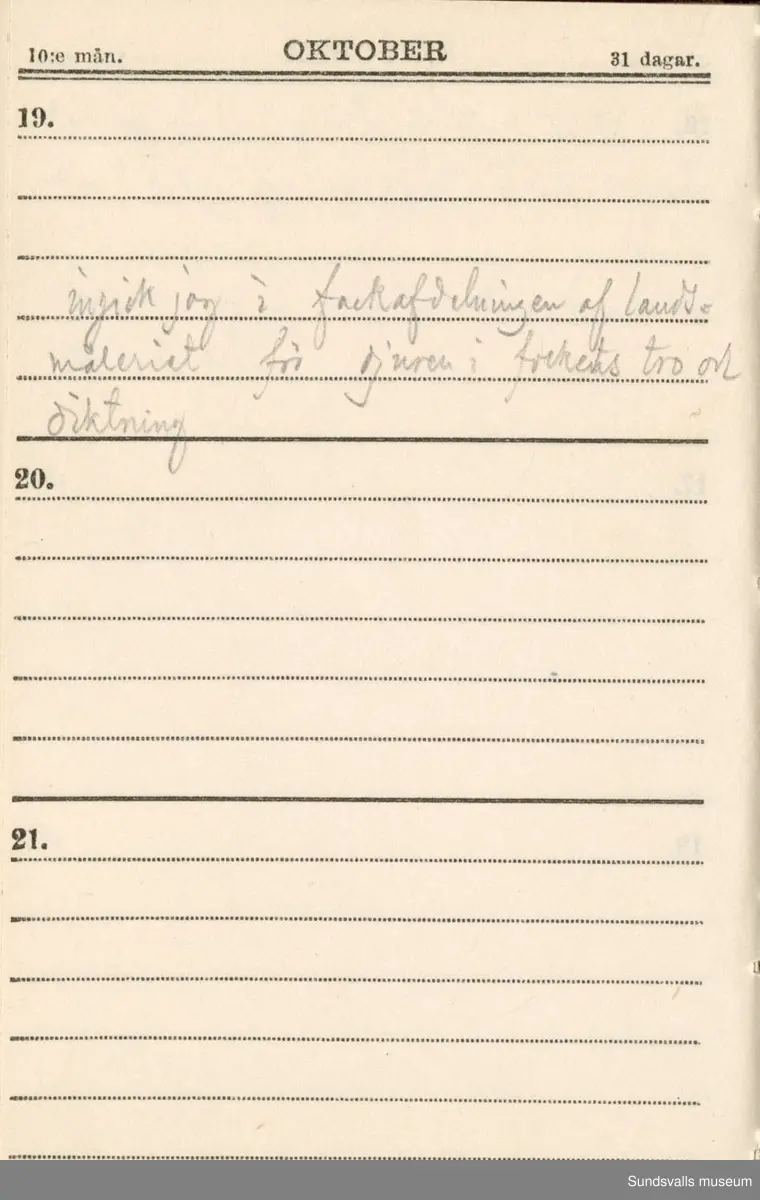 10:e mån. OKTOBER 31 dagar.
19.
ingick jag i fackafdelningen af lands-
måleriet för djuren i folkets tro och
diktning
20.
21.
Sundsvalls museum